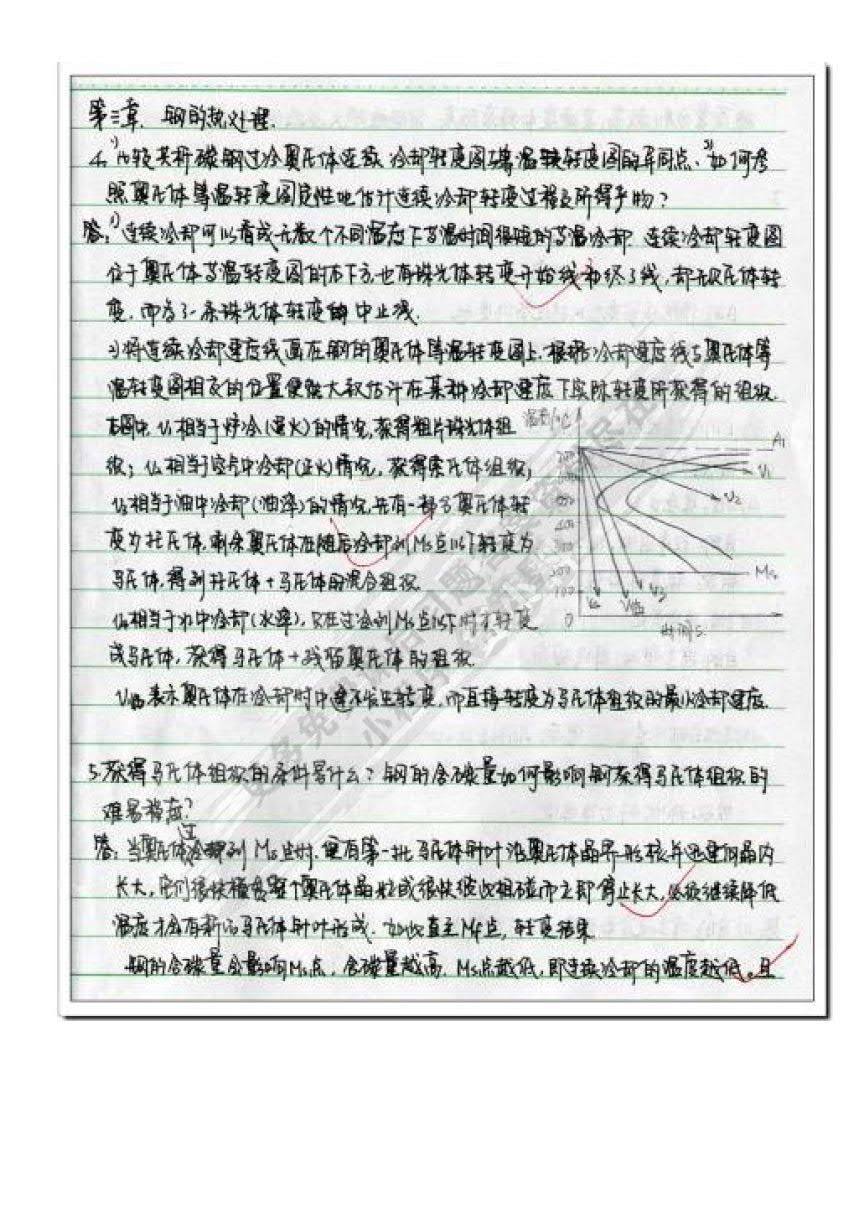 第三章. 钢的热处理.
4. 1) 比较共析碳钢过冷奥氏体连续冷却转变图与等温转变图的异同点. 2) 如何参
照奥氏体等温转变图定性地估计连续冷却转变过程及所得产物?
答: 1) 连续冷却可以看成无数个不同温度下等温时间很短的等温冷却 连续冷却转变图
位于奥氏体等温转变图的右下方也有珠光体转变开始线和终了线, 却无贝氏体转
变. 而多了一条珠光体转变的中止线.
2) 将连续冷却速度线画在钢的奥氏体等温转变图上, 根据与冷却速度线与奥氏体等
温转变图相交的位置便能大致估计在某种冷却速度下实际转变所获得的组织.
右图中 V₁相当于炉冷(退火)的情况, 获得粗片珠光体组
织; V₂相当于空气中冷却(正火)情况, 获得索氏体组织;
V₃相当于油中冷却(油淬)的情况, 先有一部分奥氏体转
变为托氏体, 剩余奥氏体在随后冷却到Ms点以下转变为
马氏体, 得到托氏体+马氏体的混合组织.
V₄相当于水中冷却(水淬), 只在过冷到Ms点以下时才转变
成马氏体, 获得马氏体+残留奥氏体的组织.
V临表示奥氏体在冷却时中途不发生转变, 而直接转变为马氏体组织的最小冷却速度.
温度/℃
A₁
V₁
V₂
400
300
200
100
0
Ms
V₃
V临
V₄
时间/s
5. 获得马氏体组织的条件是什么? 钢的含碳量如何影响钢获得马氏体组织的
难易程度?
答: 当奥氏体过冷到Ms点时, 便有第一批马氏体针叶沿奥氏体晶界形核并迅速向晶内
长大, 它们很快横贯整个奥氏体晶粒或很快彼此相碰而立即停止长大, 必须继续降低
温度才会有新的马氏体针叶形成. 如此直至Mf点, 转变结束
钢的含碳量会影响Ms点, 含碳量越高, Ms点越低, 即连续冷却的温度越低。且